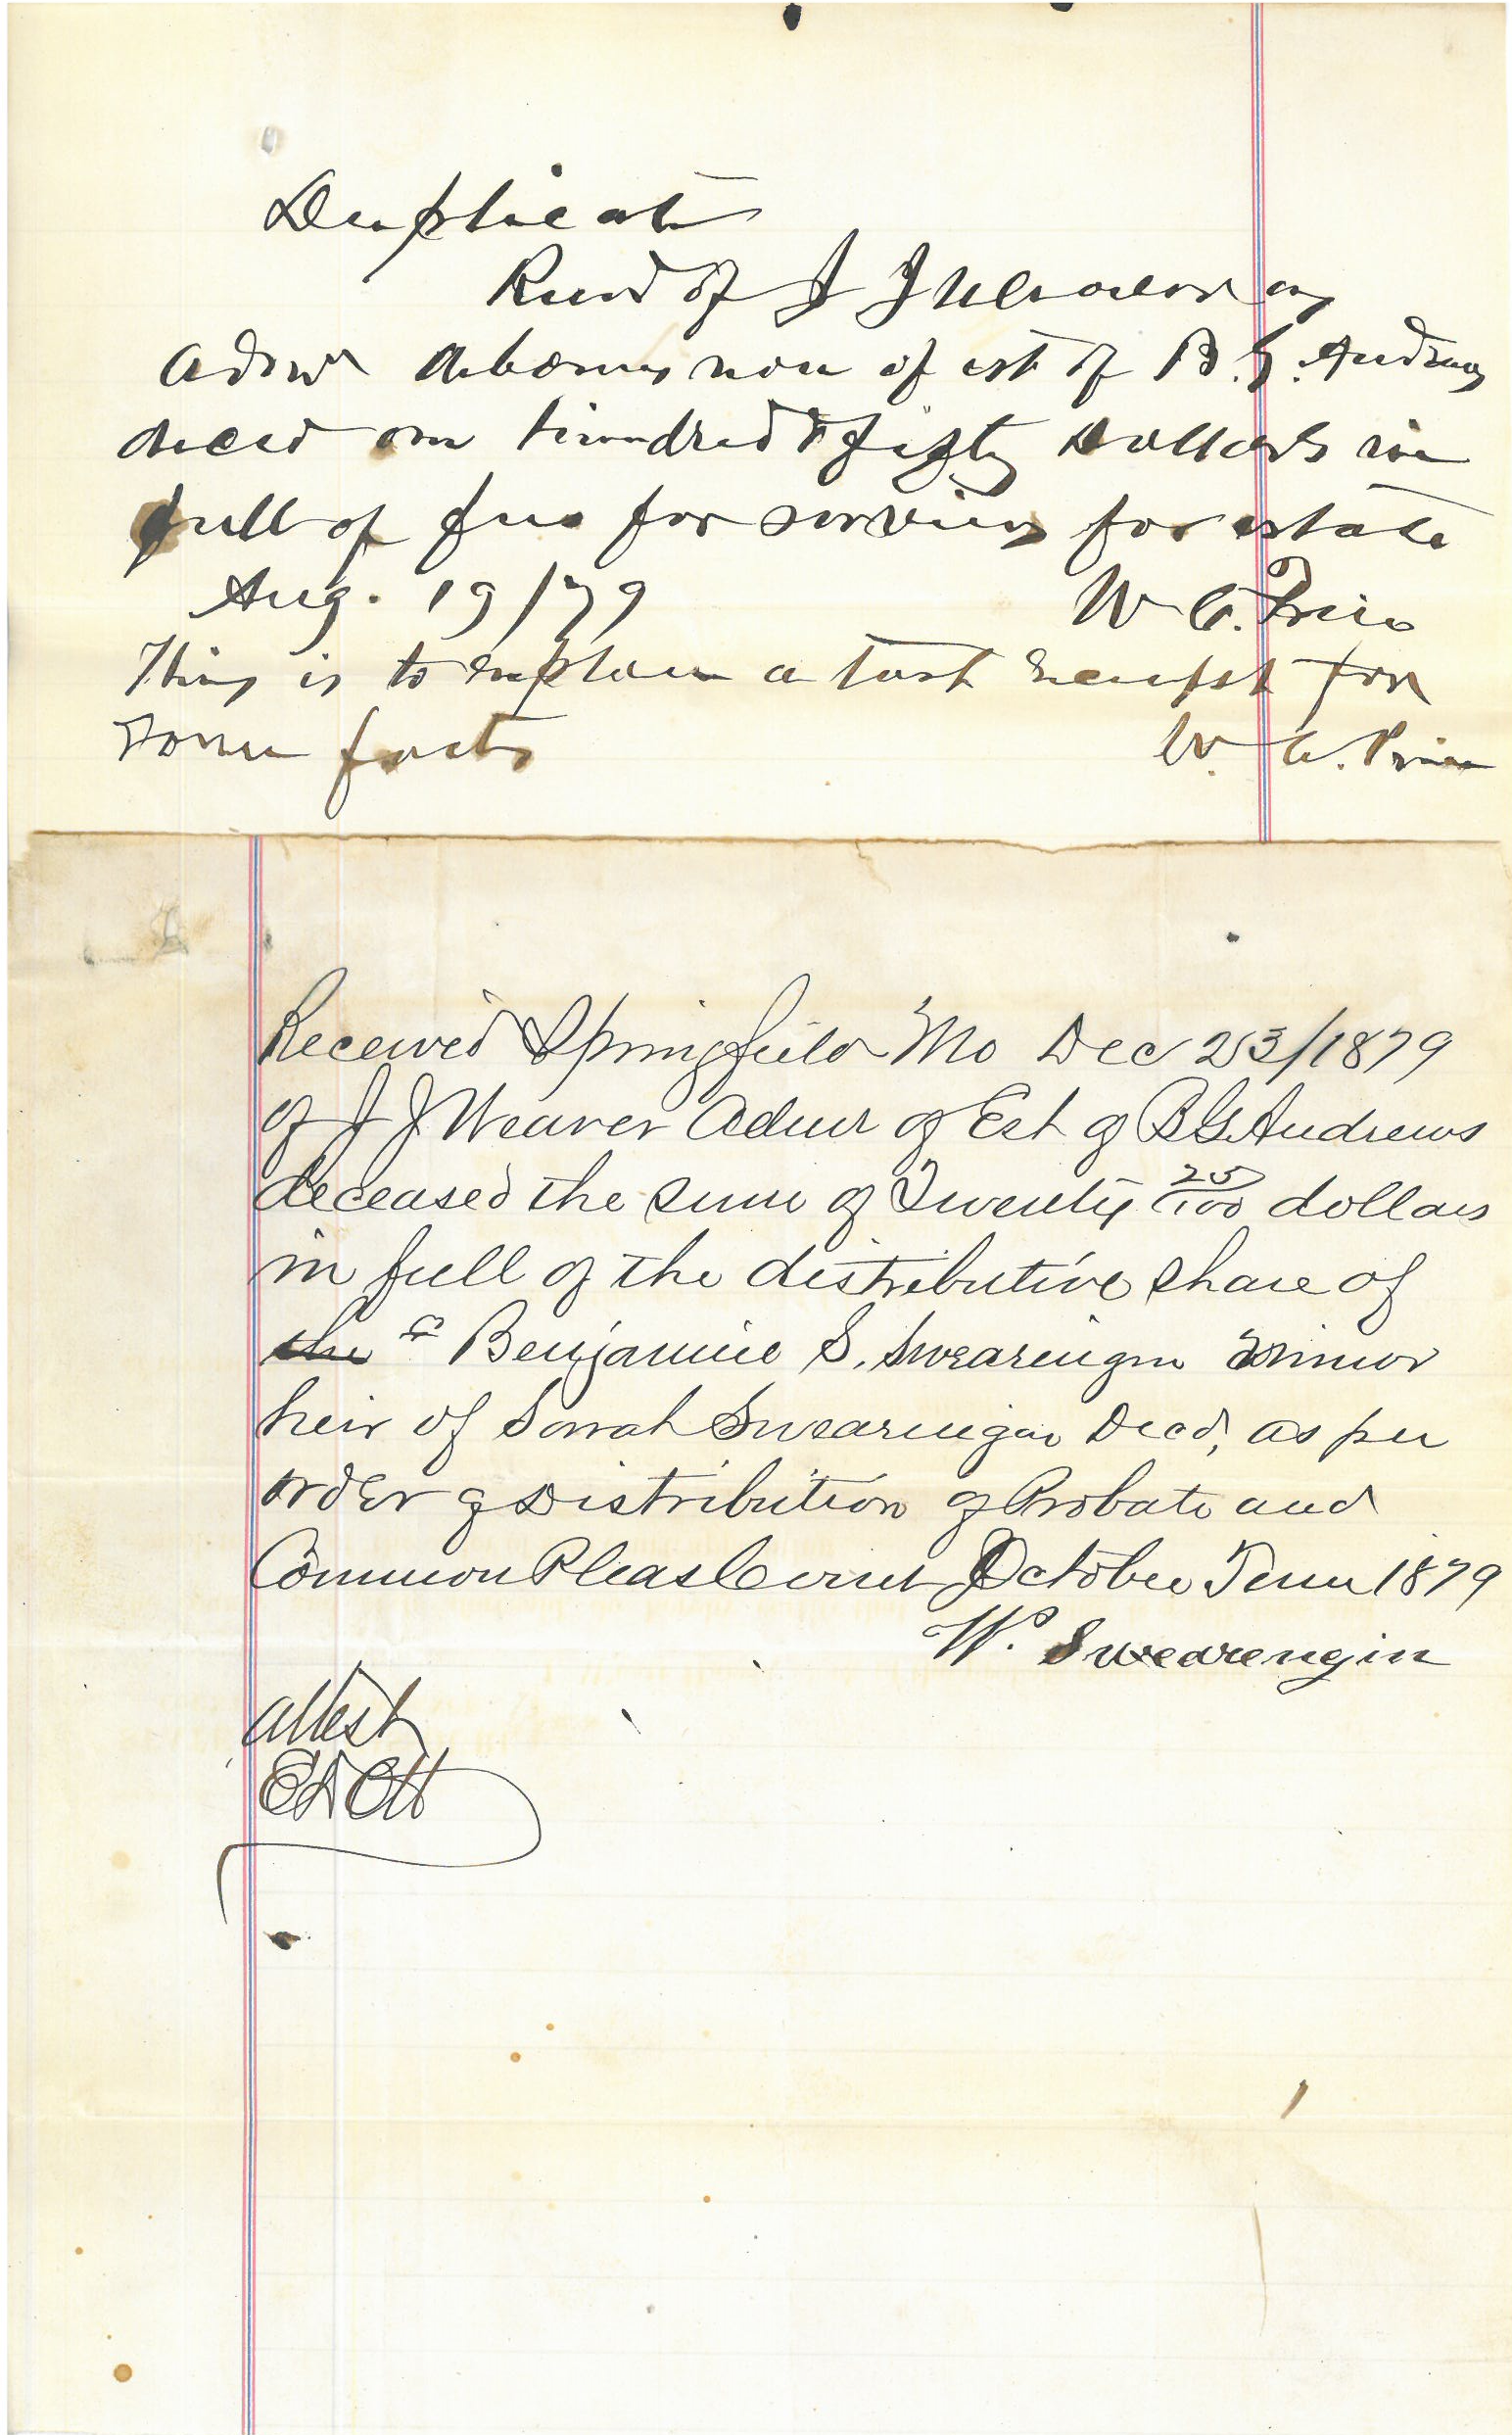 Duplicate
Recvd of J J Weaver as
Admr debonis non of est of B. G. Andrews
decd one hundred & fifty Dollars in
full of fees for services for estate
Aug. 19/79 W. C. Price
This is to replace a lost receipt for
same facts W. C. Price
Received Springfield Mo Dec 23/1879
of J J Weaver Admr of Est of B G Andrews
deceased the sum of Twenty 25/100 dollars
in full of the distributive share of
the Benjamine S. Swearingin minor
heir of Sarah Swearingin Decd, as per
order of Distribution of Probate and
Common Pleas Court October Term 1879
W. Swearengin
attest